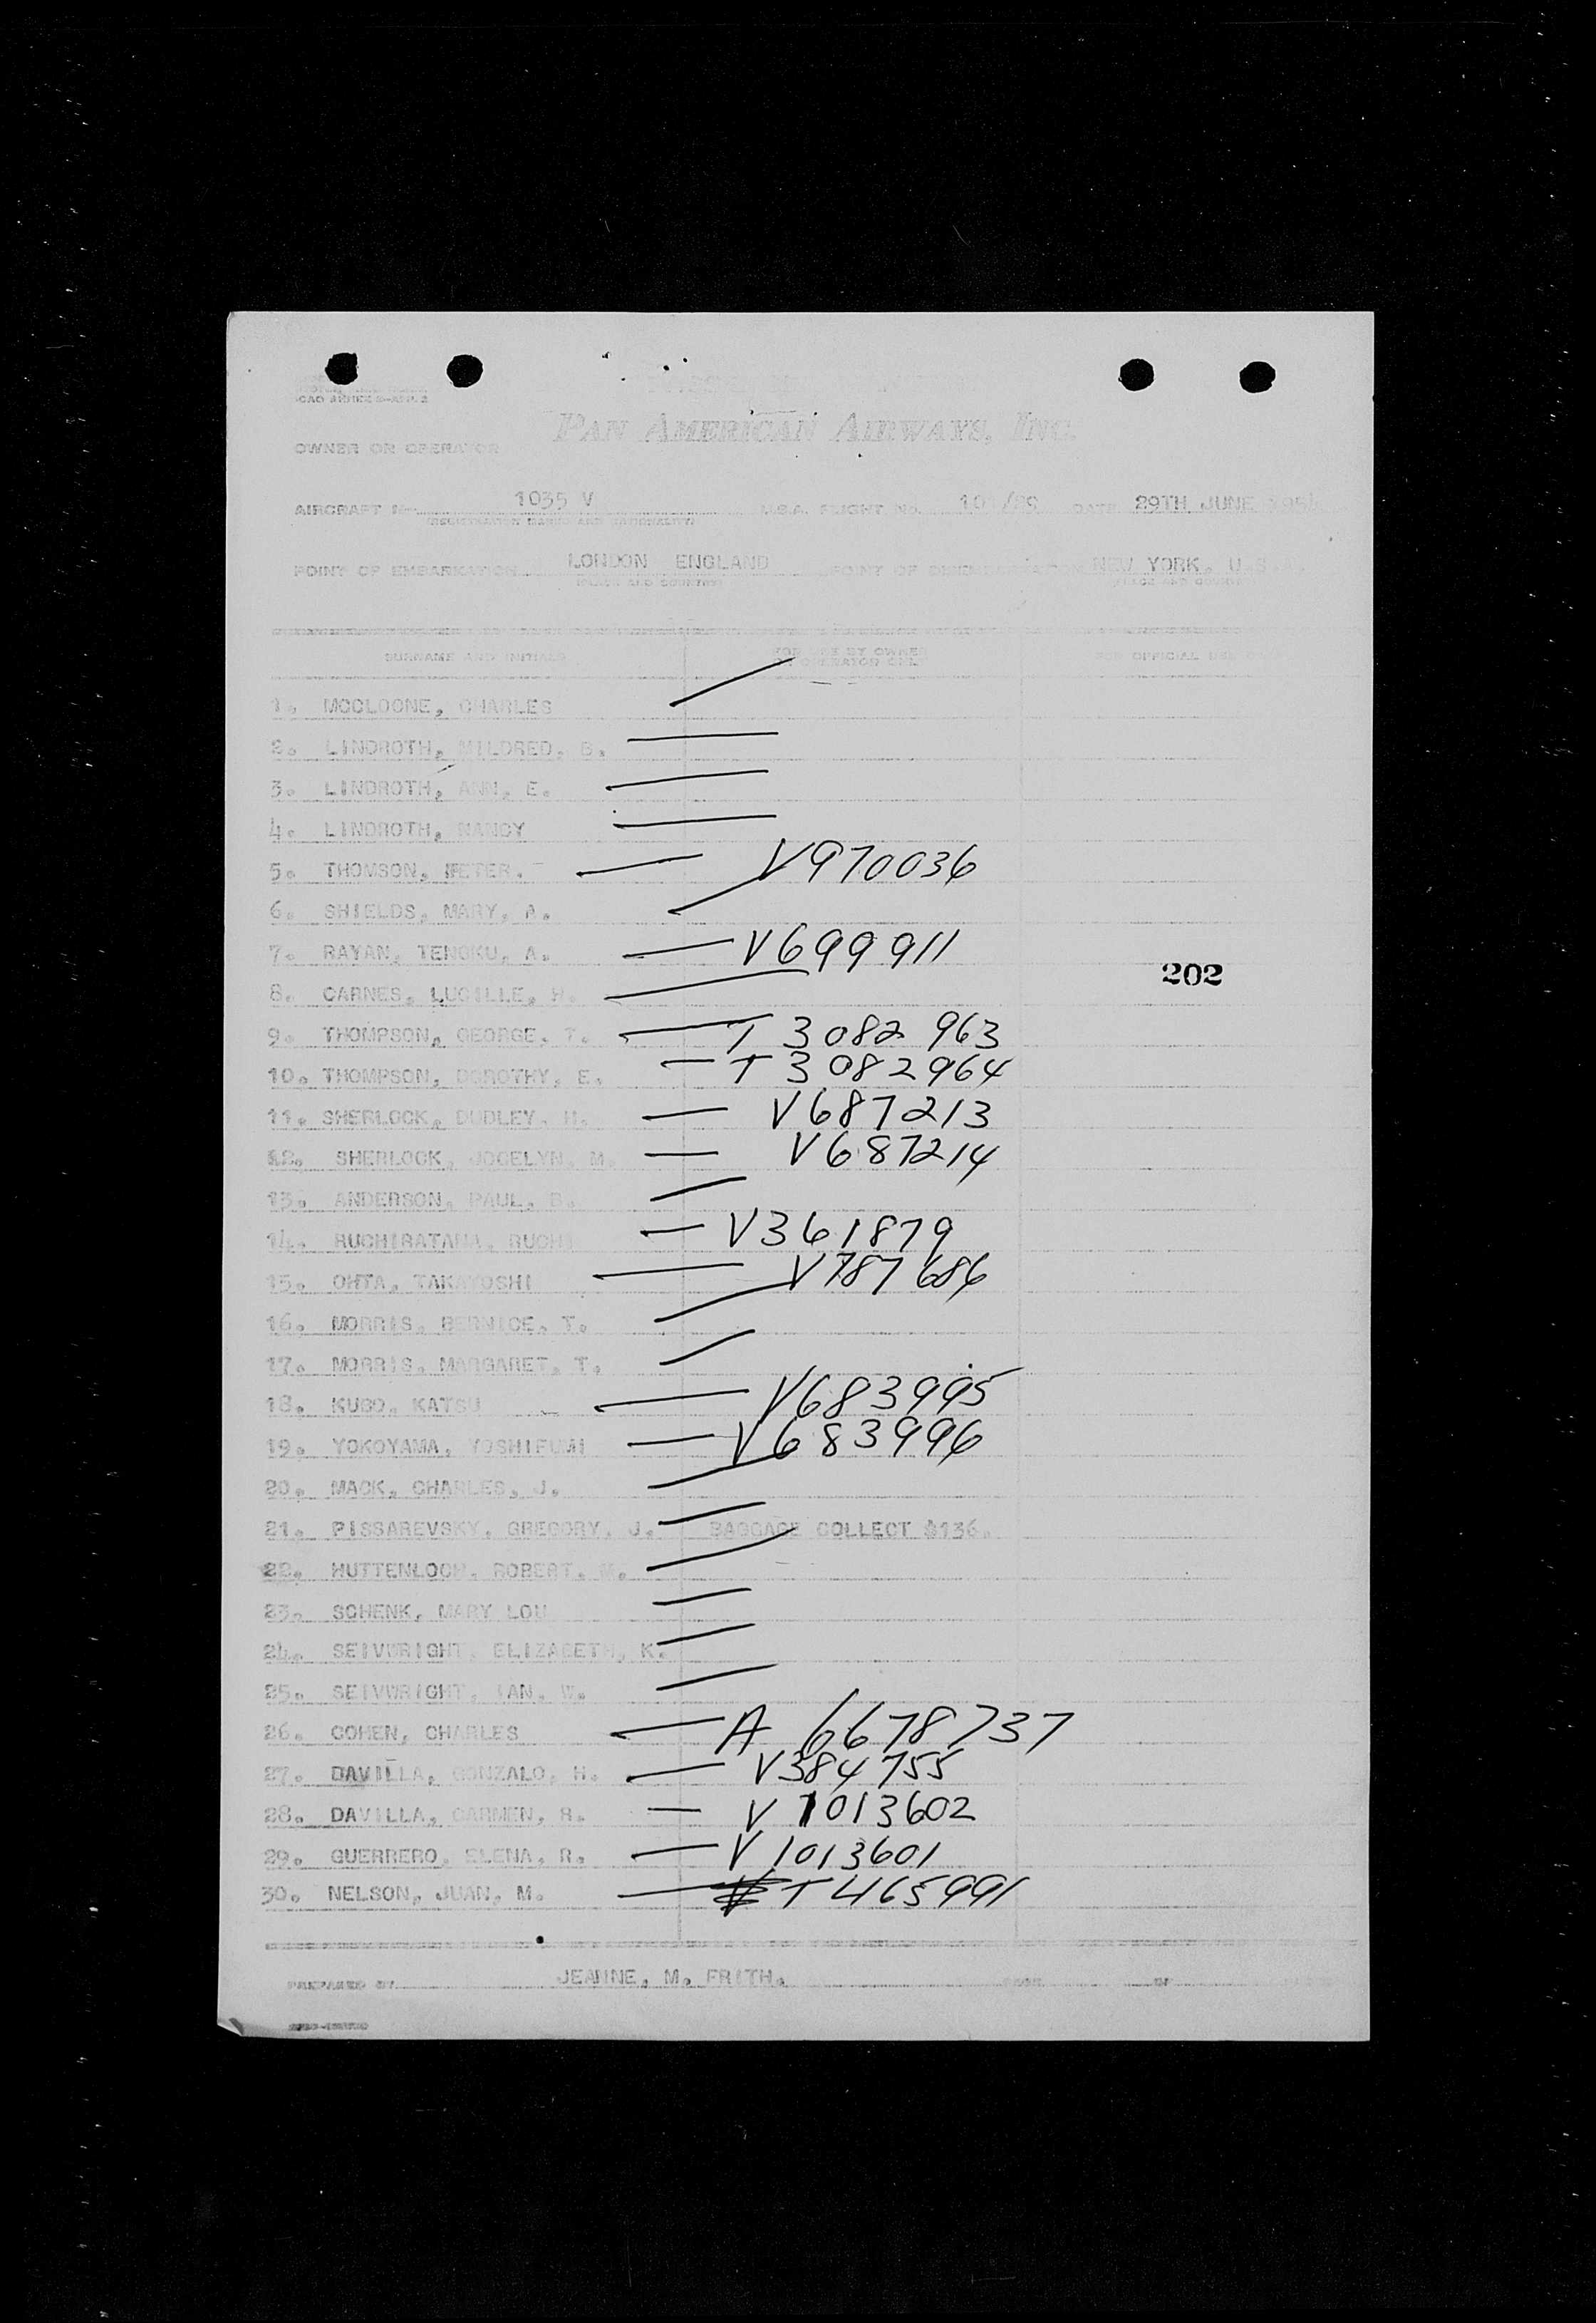 ICAO ANNEX 9-APP. 2
PAN AMERICAN AIRWAYS, INC.
OWNER OR OPERATOR
AIRCRAFT 1035 V U.S.A. FLIGHT NO. DATE 29TH JUNE
(REGISTRATION MARKS AND NATIONALITY)
POINT OF EMBARKATION LONDON ENGLAND POINT OF DISEMBARKATION NEW YORK, U.S.A.
(PLACE AND COUNTRY) (PLACE AND COUNTRY)
SURNAME AND INITIALS FOR USE BY OWNER OR OPERATOR ONLY FOR OFFICIAL USE ONLY
1. MCCLOONE, CHARLES
2. LINDROTH, MILDRED, B.
3. LINDROTH, ANN, E.
4. LINDROTH, NANCY
5. THOMSON, PETER. V970036
6. SHIELDS, MARY, A.
7. RAYAN, TENGKU, A. V699911
202
8. CARNES, LUCILLE, H.
9. THOMPSON, GEORGE, T. T 3082 963
10. THOMPSON, DOROTHY, E. T 3082964
11. SHERLOCK, DUDLEY, H. V687213
12. SHERLOCK, JOCELYN, M. V687214
13. ANDERSON, PAUL, B.
14. RUCHIRATANA, RUCHI V361879
15. OHTA, TAKAYOSHI V787686
16. MORRIS, BERNICE, T.
17. MORRIS, MARGARET, T.
18. KUBO, KATSU V683995
19. YOKOYAMA, YOSHIFUMI V683996
20. MACK, CHARLES, J.
21. PISSAREVSKY, GREGORY, J. BAGGAGE COLLECT $136.
22. HUTTENLOCH, ROBERT, M.
23. SCHENK, MARY LOU
24. SEIVWRIGHT, ELIZABETH, K.
25. SEIVWRIGHT, IAN, W.
26. COHEN, CHARLES A 6678737
27. DAVILLA, GONZALO, H. V384755
28. DAVILLA, CARMEN, R. V 1013602
29. GUERRERO, ELENA, R. V 1013601
30. NELSON, JUAN, M. T 465991
PREPARED BY JEANNE, M. FRITH. PAGE OF